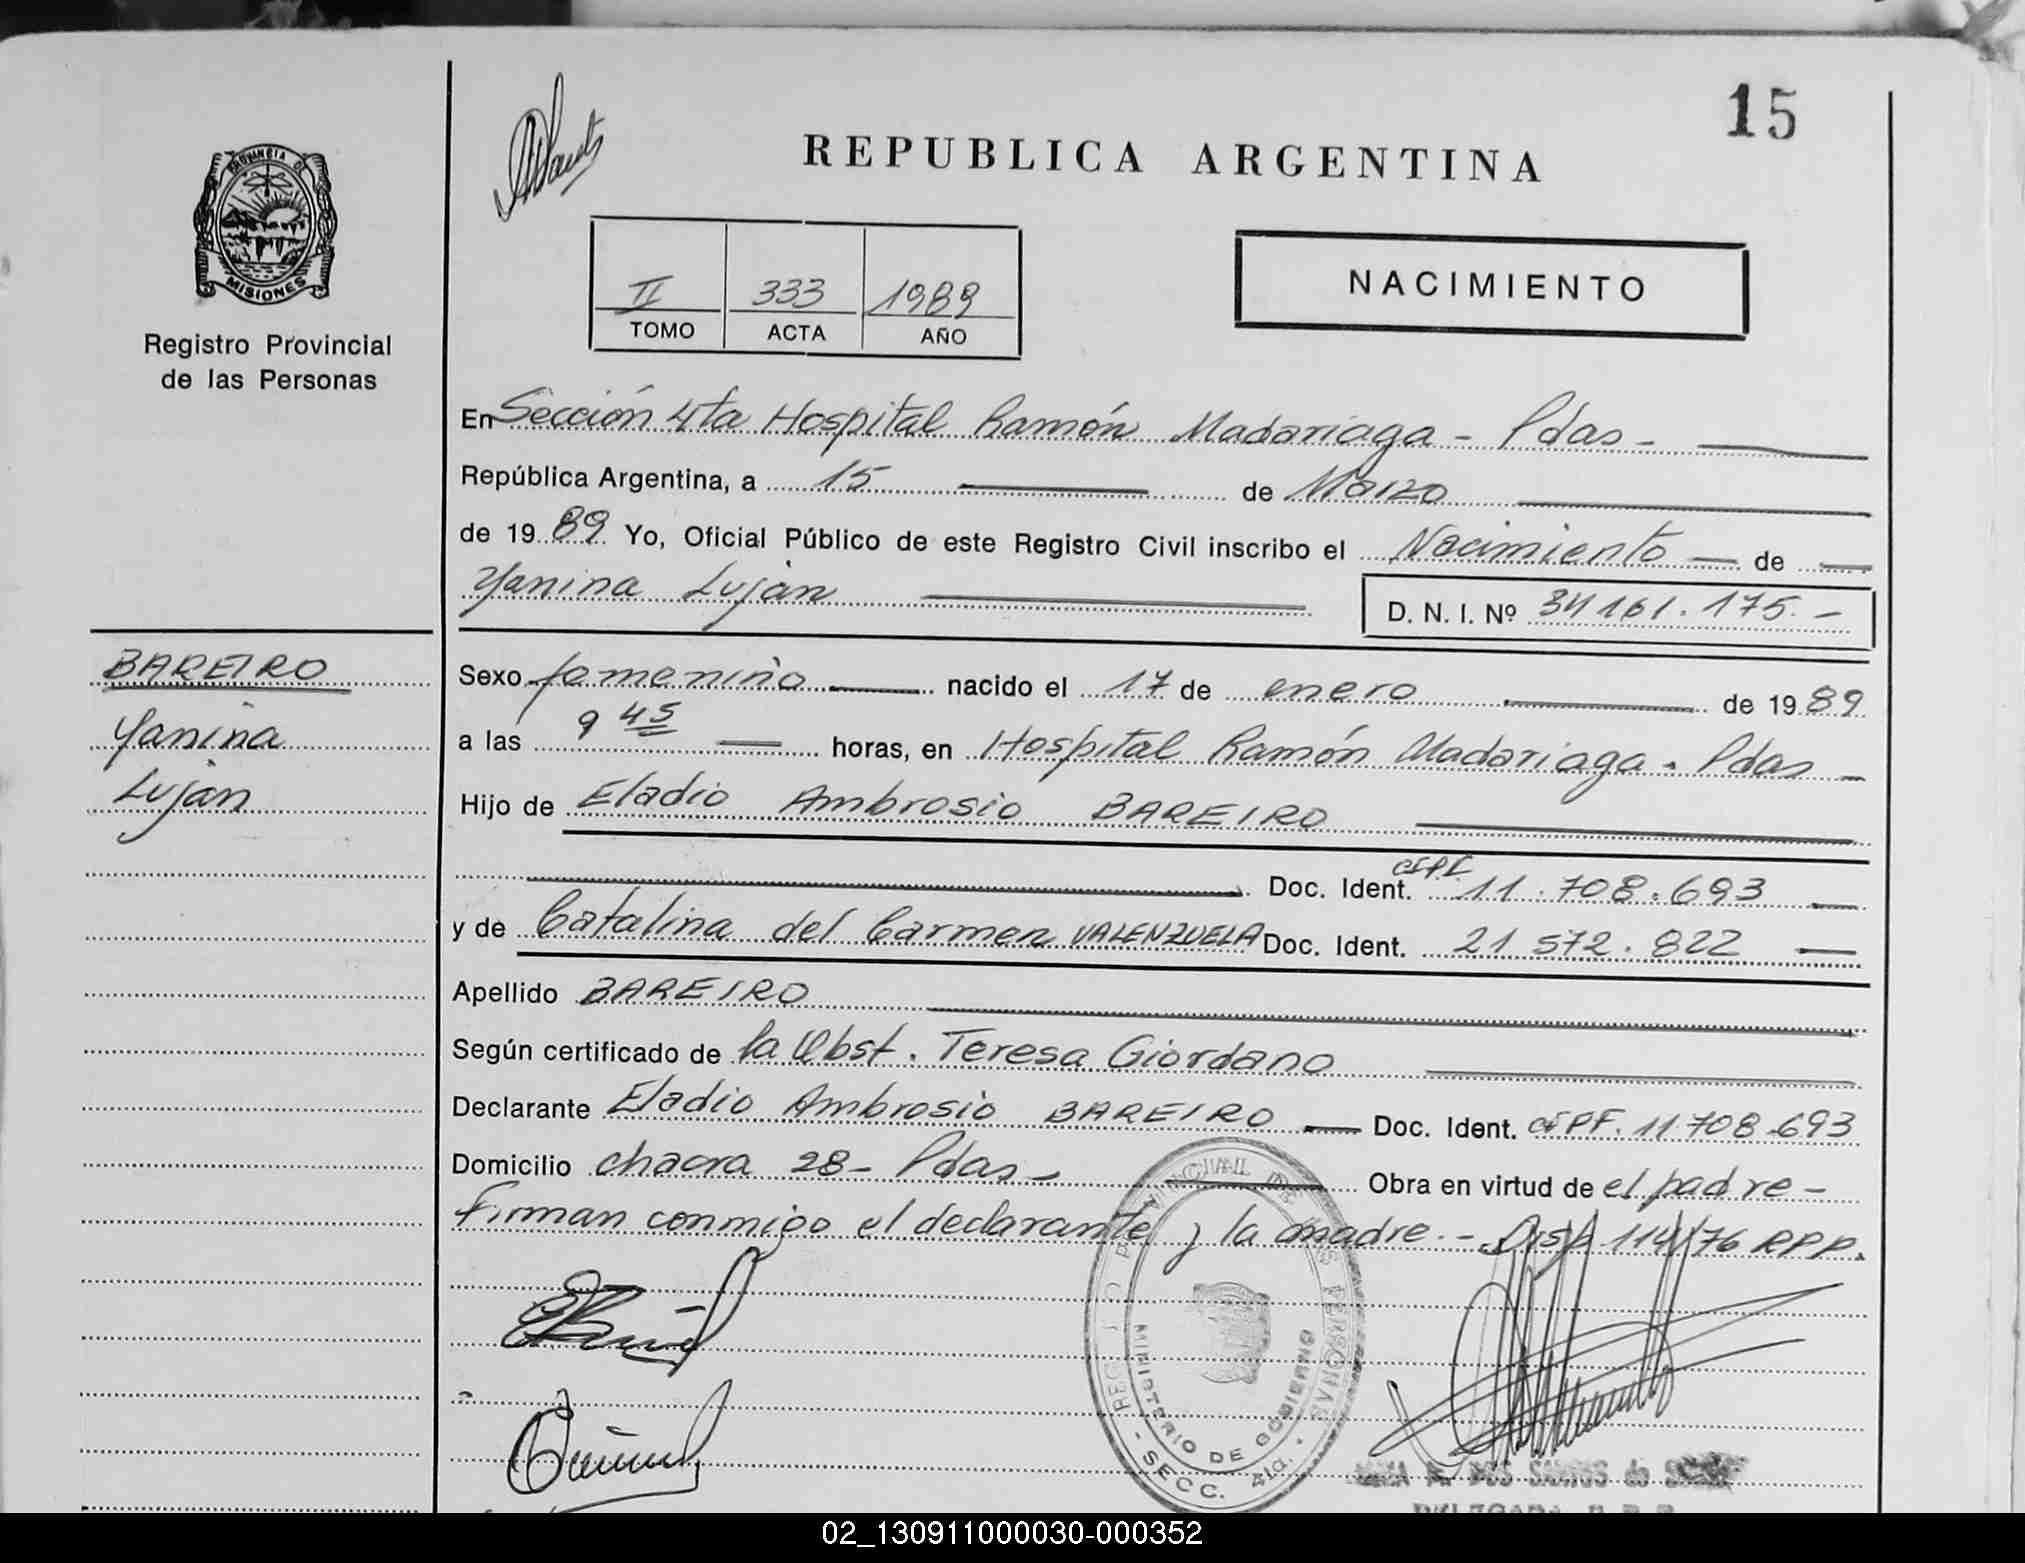 15
REPUBLICA ARGENTINA
PROVINCIA DE
MISIONES
Registro Provincial
de las Personas
II 333 1989
TOMO ACTA AÑO
NACIMIENTO
En Sección 4ta Hospital Ramón Madariaga - Pdas -
República Argentina, a 15 de Marzo
de 1989 Yo, Oficial Público de este Registro Civil inscribo el Nacimiento de
Yanina Luján
D. N. I. Nº 34 161.175.-
BAREIRO
Yanina
Luján
Sexo femenino nacido el 17 de enero de 1989
a las 9 45 horas, en Hospital Ramón Madariaga. Pdas
Hijo de Eladio Ambrosio BAREIRO
Doc. Ident. 11.708.693
y de Catalina del Carmen VALENZUELA Doc. Ident. 21 572.822
Apellido BAREIRO
Según certificado de la Obst. Teresa Giordano
Declarante Eladio Ambrosio BAREIRO Doc. Ident. CIPF. 11 708.693
Domicilio chacra 28- Pdas - Obra en virtud de el padre -
Firman conmigo el declarante y la madre.- Disp 114/76 RPP.
MINISTERIO DE GOBIERNO
SECC. 4ta.
DOS SANTOS de
02_130911000030-000352